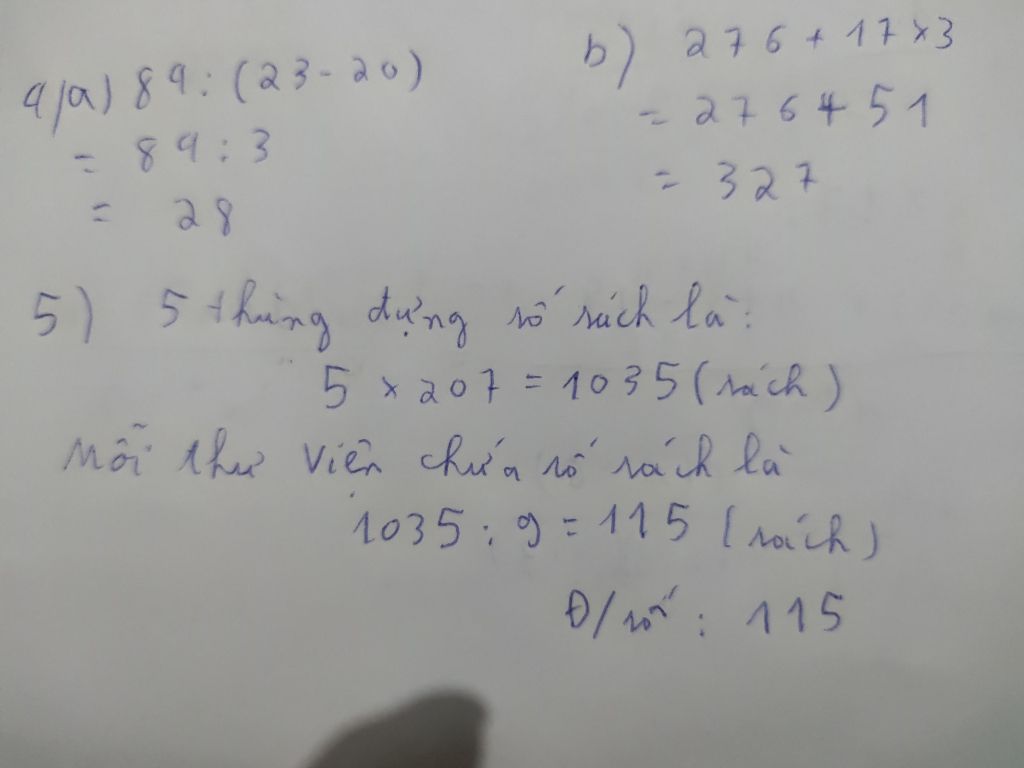 4/a) 84 : (23 - 20)
= 84 : 3
= 28
b) 276 + 17 x 3
= 276 + 51
= 327
5) 5 thùng đựng số sách là:
5 x 207 = 1035 (sách)
Mỗi thư viện chứa số sách là
1035 : 9 = 115 (sách)
Đ/số : 115